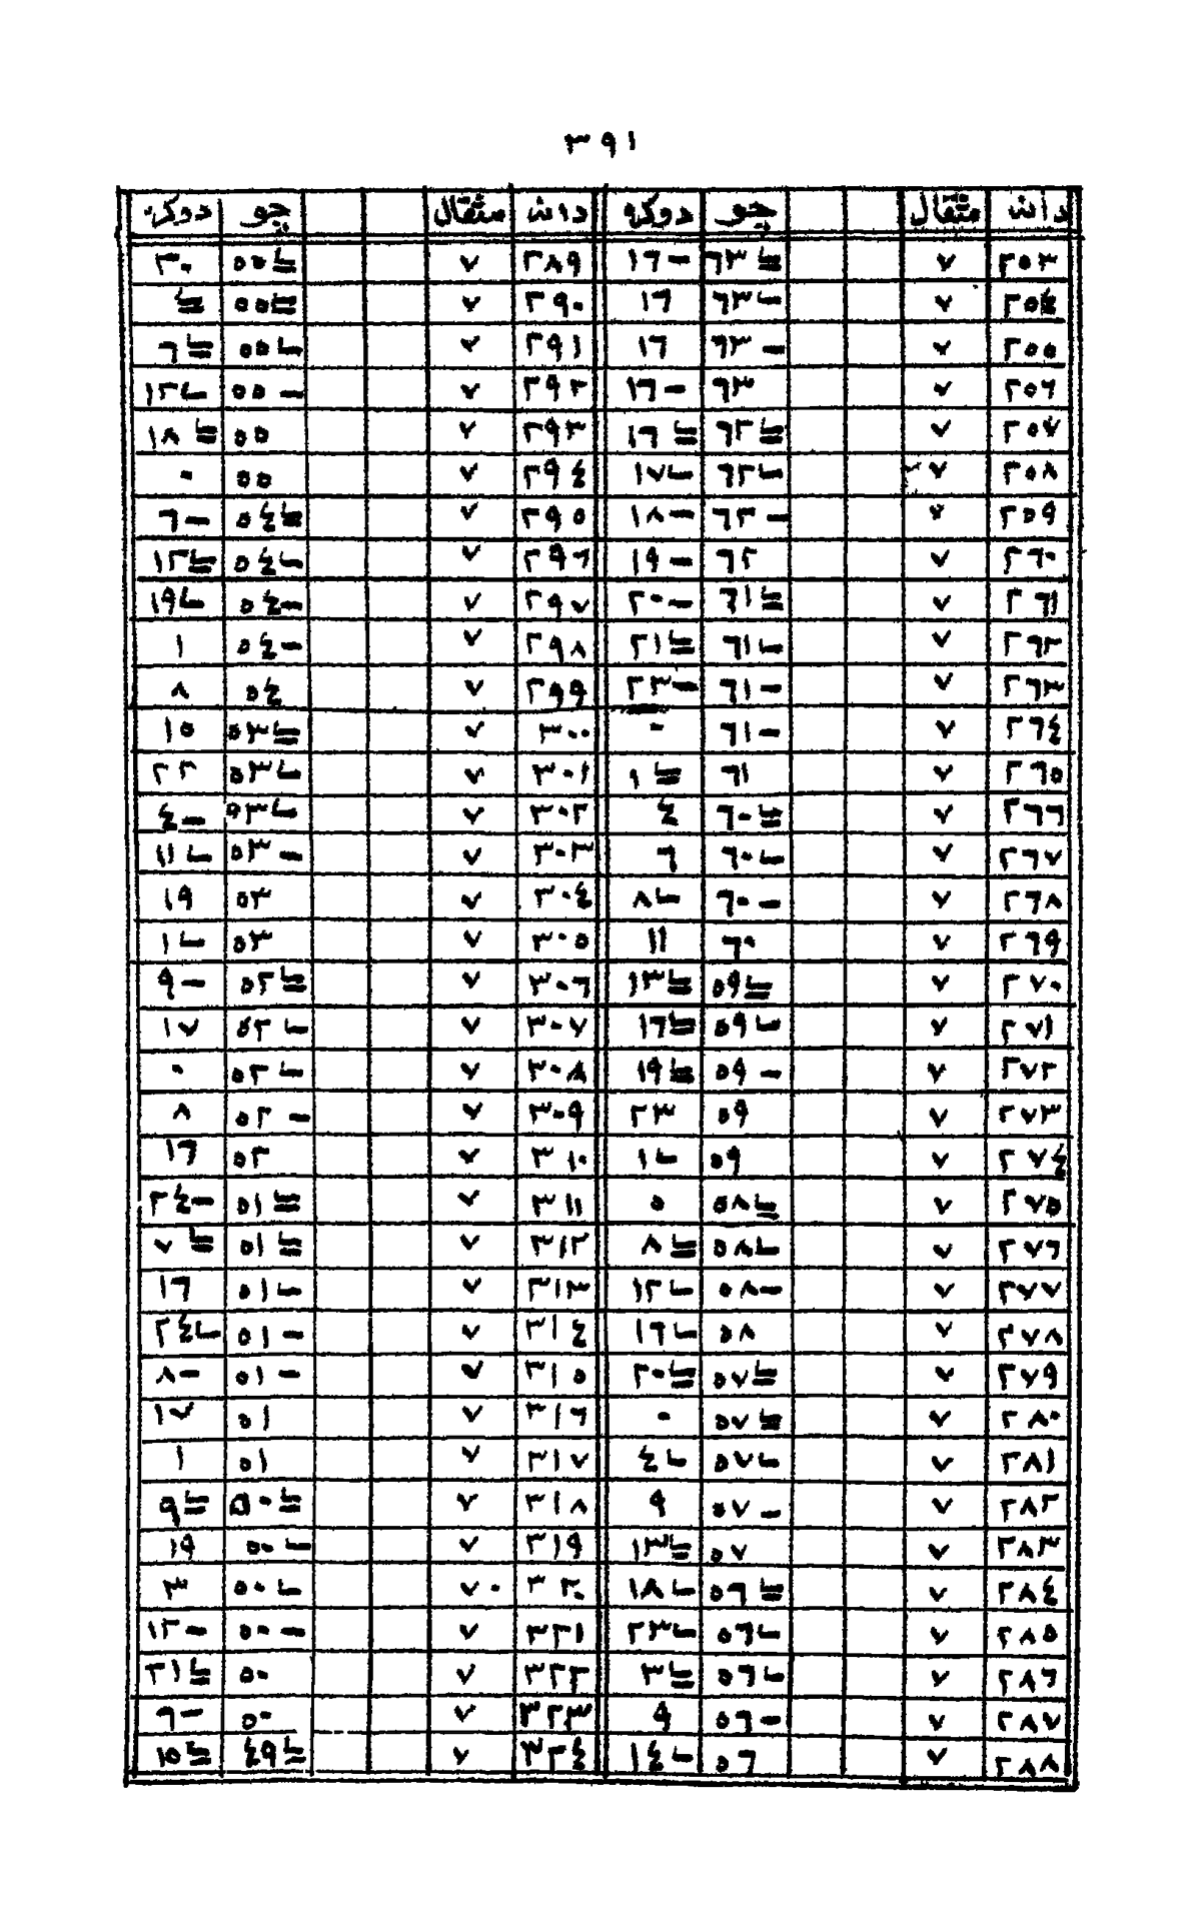 ٣٩١
دانه مثقال چو دوكره دانه مثقال چو دوكره
٢٥٣ ٧ ٦٣ ١٦- ٢٨٩ ٧ ٥٥ ٢٠
٢٥٤ ٧ ٦٣ ١٦ ٢٩٠ ٧ ٥٥
٢٥٥ ٧ ٦٣- ١٦ ٢٩١ ٧ ٥٥ ٦
٢٥٦ ٧ ٦٣ ١٦- ٢٩٢ ٧ ٥٥- ١٢
٢٥٧ ٧ ٦٢ ١٦ ٢٩٣ ٧ ٥٥ ١٨
٢٥٨ ٧ ٦٢ ١٧ ٢٩٤ ٧ ٥٥ ٠
٢٥٩ ٧ ٦٢- ١٨- ٢٩٥ ٧ ٥٤ ٦-
٢٦٠ ٧ ٦٢ ١٩- ٢٩٦ ٧ ٥٤ ١٢
٢٦١ ٧ ٦١ ٢٠- ٢٩٧ ٧ ٥٤- ١٩
٢٦٢ ٧ ٦١ ٢١ ٢٩٨ ٧ ٥٤- ١
٢٦٣ ٧ ٦١- ٢٣- ٢٩٩ ٧ ٥٤ ٨
٢٦٤ ٧ ٦١- ٠ ٣٠٠ ٧ ٥٣ ١٥
٢٦٥ ٧ ٦١ ١ ٣٠١ ٧ ٥٣ ٢٢
٢٦٦ ٧ ٦٠ ٤ ٣٠٢ ٧ ٥٣ ٤-
٢٦٧ ٧ ٦٠ ٦ ٣٠٣ ٧ ٥٣- ١١
٢٦٨ ٧ ٦٠- ٨ ٣٠٤ ٧ ٥٣ ١٩
٢٦٩ ٧ ٦٠ ١١ ٣٠٥ ٧ ٥٣ ١
٢٧٠ ٧ ٥٩ ١٣ ٣٠٦ ٧ ٥٢ ٩-
٢٧١ ٧ ٥٩ ١٦ ٣٠٧ ٧ ٥٢ ١٧
٢٧٢ ٧ ٥٩- ١٩ ٣٠٨ ٧ ٥٢ ٠
٢٧٣ ٧ ٥٩ ٢٣ ٣٠٩ ٧ ٥٢- ٨
٢٧٤ ٧ ٥٩ ١ ٣١٠ ٧ ٥٢ ١٦
٢٧٥ ٧ ٥٨ ٥ ٣١١ ٧ ٥١ ٢٤-
٢٧٦ ٧ ٥٨ ٨ ٣١٢ ٧ ٥١ ٧
٢٧٧ ٧ ٥٨- ١٢ ٣١٣ ٧ ٥١ ١٦
٢٧٨ ٧ ٥٨ ١٦ ٣١٤ ٧ ٥١- ٢٤
٢٧٩ ٧ ٥٧ ٢٠ ٣١٥ ٧ ٥١- ٨-
٢٨٠ ٧ ٥٧ ٠ ٣١٦ ٧ ٥١ ١٧
٢٨١ ٧ ٥٧ ٤ ٣١٧ ٧ ٥١ ١
٢٨٢ ٧ ٥٧- ٩ ٣١٨ ٧ ٥٠ ٩
٢٨٣ ٧ ٥٧ ١٣ ٣١٩ ٧ ٥٠ ١٩
٢٨٤ ٧ ٥٦ ١٨ ٣٢٠ ٧ ٥٠ ٣
٢٨٥ ٧ ٥٦ ٢٣ ٣٢١ ٧ ٥٠- ١٢-
٢٨٦ ٧ ٥٦ ٣ ٣٢٢ ٧ ٥٠ ٢١
٢٨٧ ٧ ٥٦- ٩ ٣٢٣ ٧ ٥٠ ٦-
٢٨٨ ٧ ٥٦ ١٤ ٣٢٤ ٧ ٤٩ ١٥